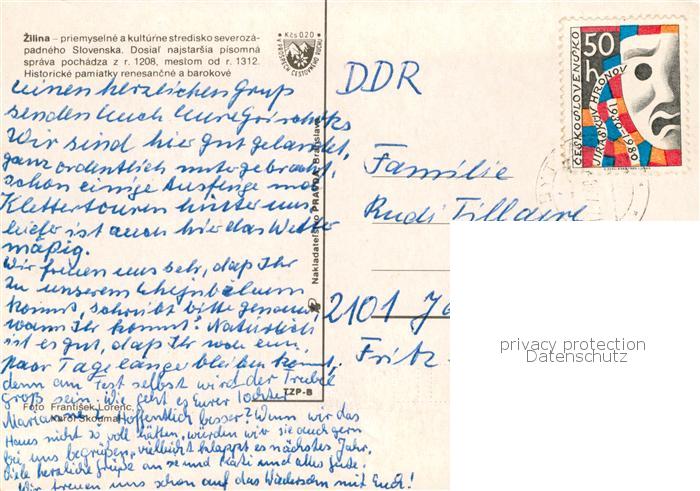 Žilina – priemyselné a kultúrne stredisko severozá-
padného Slovenska. Dosiaľ najstaršia písomná
správa pochádza z r. 1208, mestom od r. 1312.
Historické pamiatky renesančné a barokové
Kčs 0,20
V PROSPECH CESTOVNÉHO RUCHU
einen herzlichen Gruß
senden Euch Eure Grischeks
Wir sind hier gut gelandet,
ganz ordentlich untergebracht,
schon einige Ausflüge und
Klettertouren hinter uns,
leider ist auch hier das Wetter
mäßig.
Wir freuen uns sehr, daß Ihr
zu unserem
kommt, schreibt bitte genauer,
wann Ihr kommt. Natürlich
ist es gut, daß Ihr von ein
paar Tage lange bleiben könnt,
denn am Fest selbst wird der Trubel
groß sein. Wie geht es Eurer Tochter
Marianne? Hoffentlich besser? Wenn wir das
Haus nicht so voll hätten, würden wir sie auch gern
bei uns begrüßen, vielleicht klappt es nächstes Jahr.
Viele herzliche Grüße an sie und Kati und alles Gute!
Wir freuen uns schon auf das Wiedersehn mit Euch!
Foto František Lorenc,
Karol Skoumal
Nakladateľstvo PRAVDA, Bratislava
TZP-B
DDR
Familie
Rudi
2101
Fritz-
ČESKOSLOVENSKO
50 h
JIRÁSKŮV HRONOV
1930–1980
privacy protection
Datenschutz